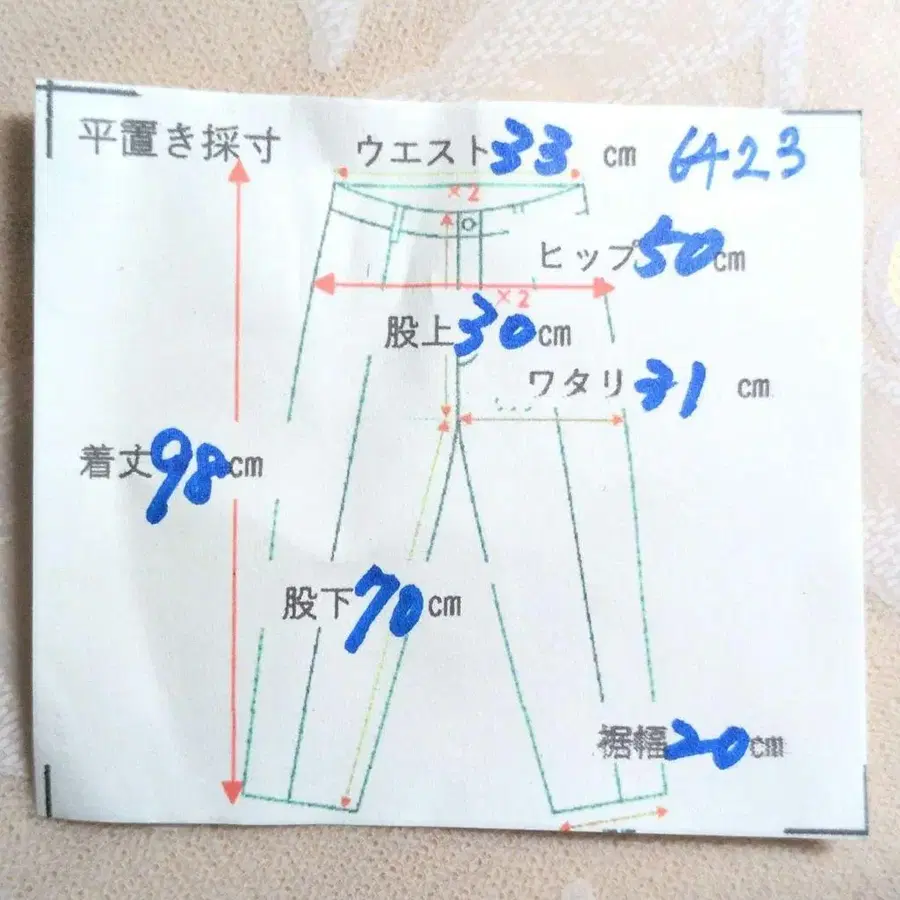 平置き採寸
ウエスト33 cm 6423
×2
ヒップ50cm
×2
股上30cm
ワタリ31 cm
着丈98cm
股下70cm
裾幅20cm